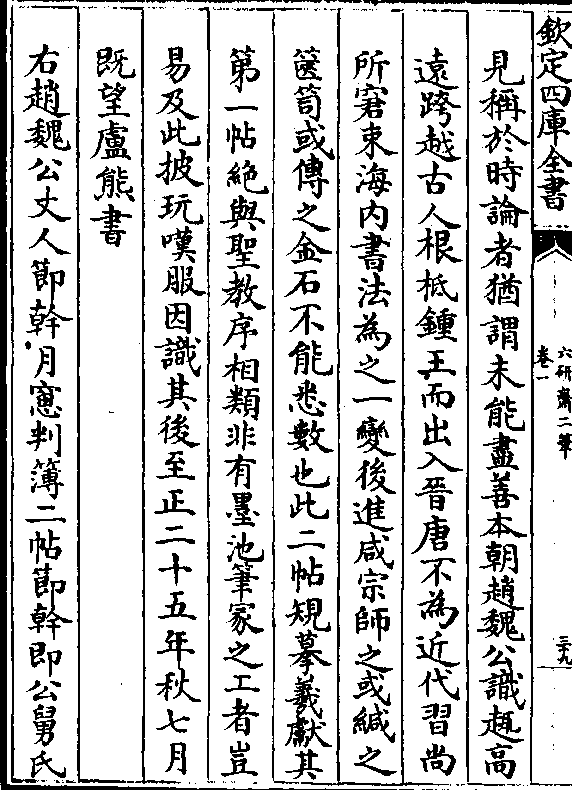 欽定四庫全書
六研齋二筆
卷一
三十九
見稱於時論者猶謂未能盡善本朝趙魏公識趣高
遠跨越古人根柢鍾王而出入晉唐不為近代習尚
所窘束海内書法為之一變後進咸宗師之或緘之
篋笥或傳之金石不能悉數也此二帖規摹羲獻其
第一帖絶與聖教序相類非有墨池筆冢之工者豈
易及此披玩嘆服因識其後至正二十五年秋七月
既望盧熊書
右趙魏公丈人節幹月窻判簿二帖節幹即公舅氏